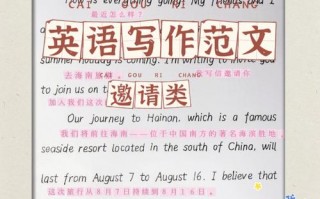 CAI GOU RI CHANG
How is everything going? My friends and I
最近怎么样？
英语写作范文
summer holiday is coming. I'm writing to invite you
去海南旅行
GOU RI CHANG
写信邀请你
to join us on t
加入我们这次
邀请类
Our journey to Hainan, which is a famous
我们将前往海南——位于中国南方的著名海滨胜地
seaside resort located in the south of China, will
last from August 7 to August 16. I believe that
这次旅行从8月7日持续到8月16日。